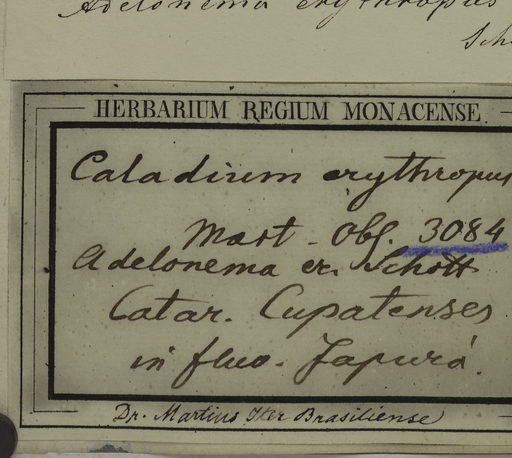 Adelonema erythropus
Sch
HERBARIUM REGIUM MONACENSE.
Caladium erythropus
Mart. Obs. 3084
Adelonema er. Schott
Catar. Cupatenses
in fluv. Japurá.
Dr. Martius Iter Brasiliense